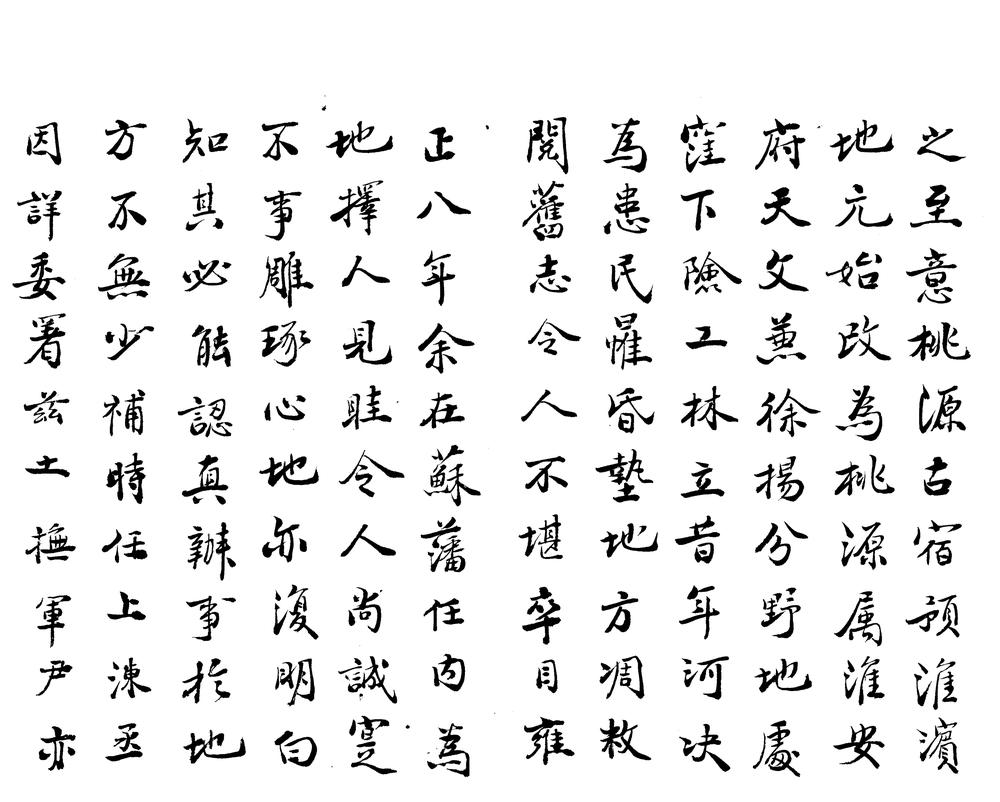 之至意桃源古宿預淮濱
地元始改為桃源属淮安
府天文蒹徐揚分野地處
窪下險工林立昔年河决
為患民罹昏墊地方凋敝
閱舊志令人不堪卒目雍
正八年余在蘇藩任内為
地擇人見眭令人尚誠寔
不事雕琢心地亦復明白
知其必能認真辦事於地
方不無少補時任上湅丞
因詳委署茲土撫軍尹亦